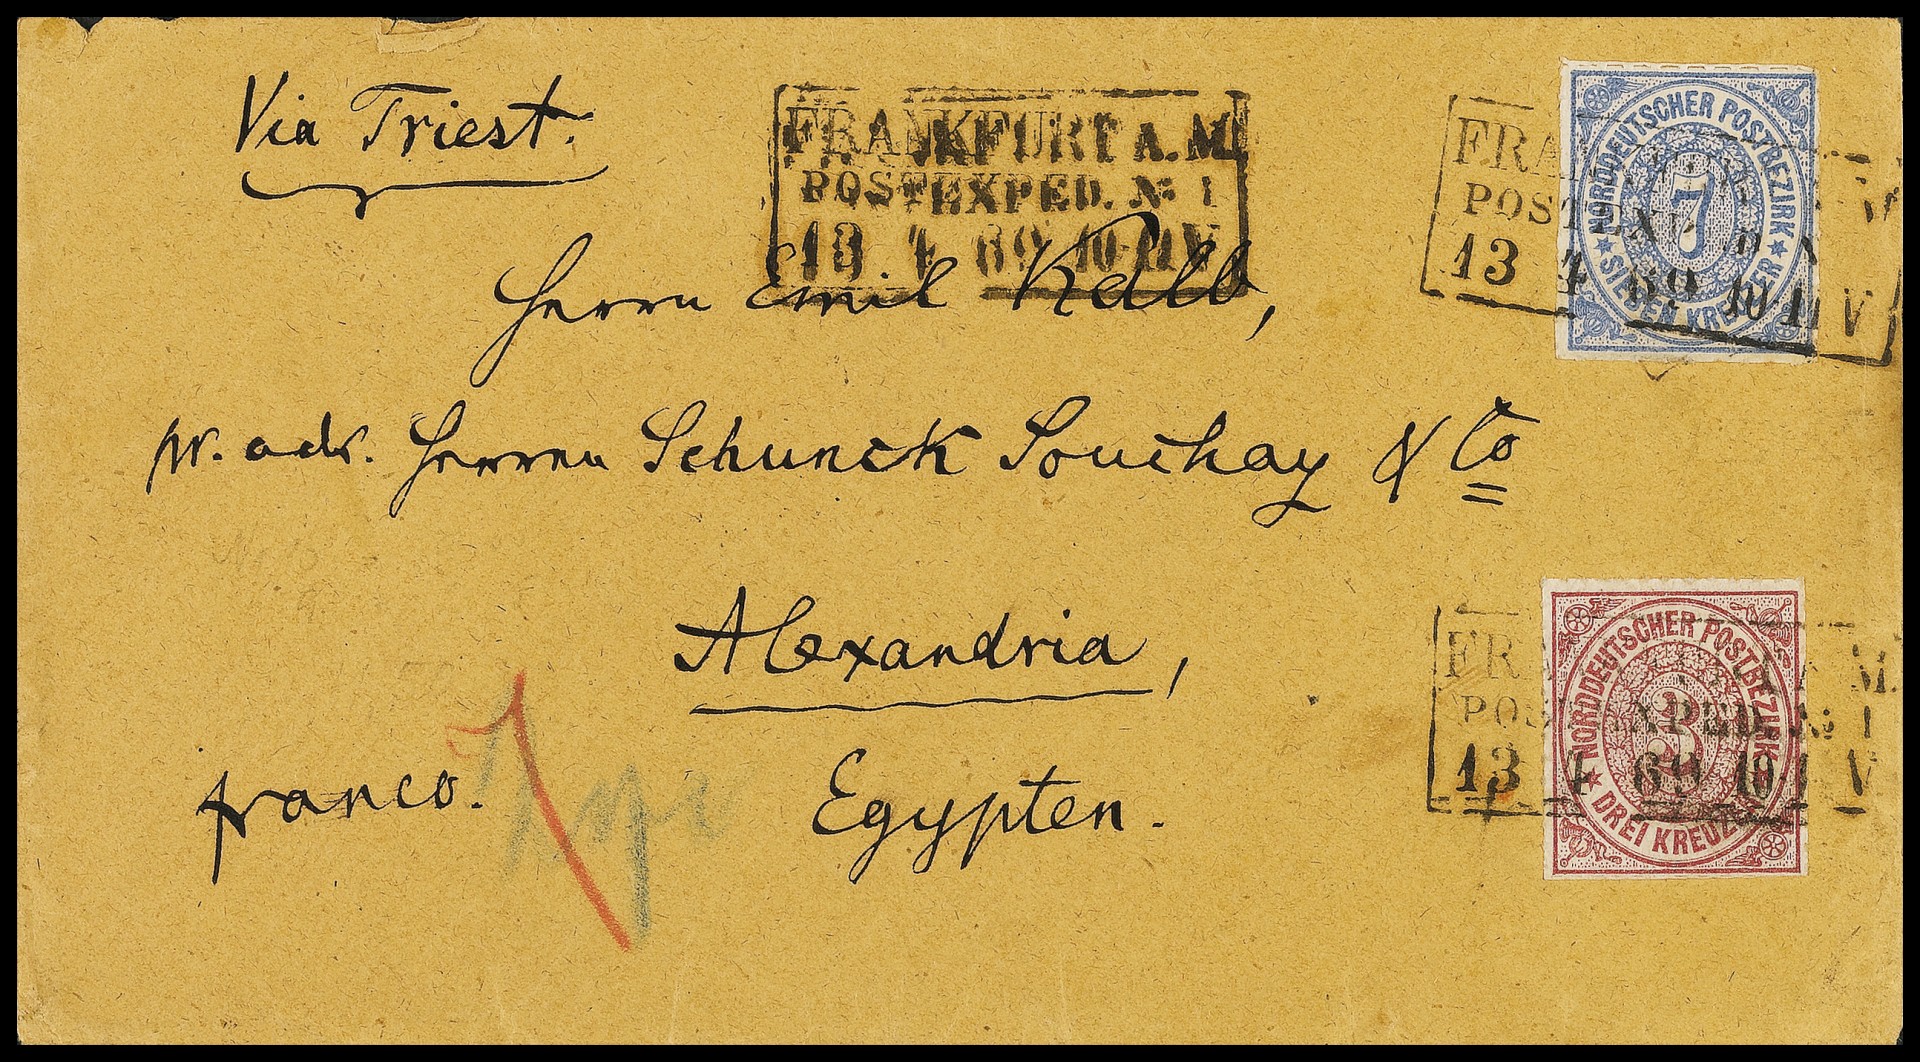 Via Triest.
FRANKFURT A. M.
POSTEXPED. No. 1
13 4 69 10-11 V
Herrn Emil Kalb,
pr. adr. Herren Schunck Souchay & Co
Alexandria,
franco.
Egypten.
NORDDEUTSCHER POSTBEZIRK
7
SIEBEN KREUZER
FRA M
POSTEXP D N
13 4 69 10 11 V
NORDDEUTSCHER POSTBEZIRK
3
DREI KREUZER
FR A M.
POS EXPED. No. 1
13 4 69 10 1 V
7